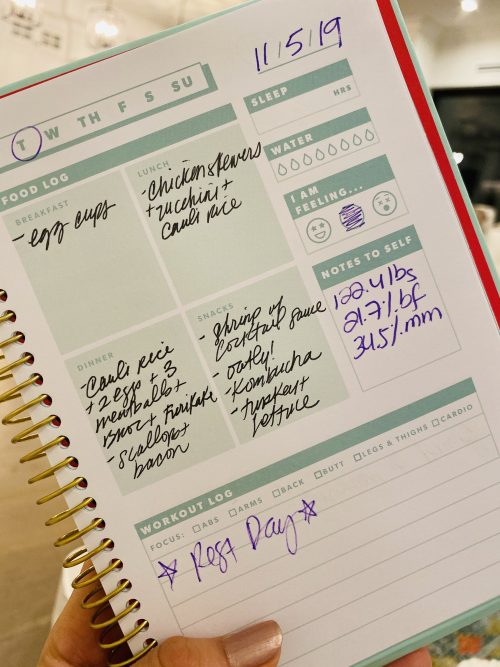 11/5/19
T W TH F S SU
SLEEP
HRS
WATER
I AM
FEELING...
NOTES TO SELF
122.4 lbs
21.7% bf
34.5% mm
FOOD LOG
BREAKFAST
- egg cups
LUNCH
- chicken skewers
+ zucchini +
cauli rice
DINNER
- Cauli rice
+ 2 eggs + 3
meatballs +
broc + Furikake
- scallops +
bacon
SNACKS
- shrimp w/
cocktail sauce
- oatly!
- Kombucha
- turkey +
lettuce
WORKOUT LOG
FOCUS: ABS ARMS BACK BUTT LEGS & THIGHS CARDIO
☆ Rest Day ☆